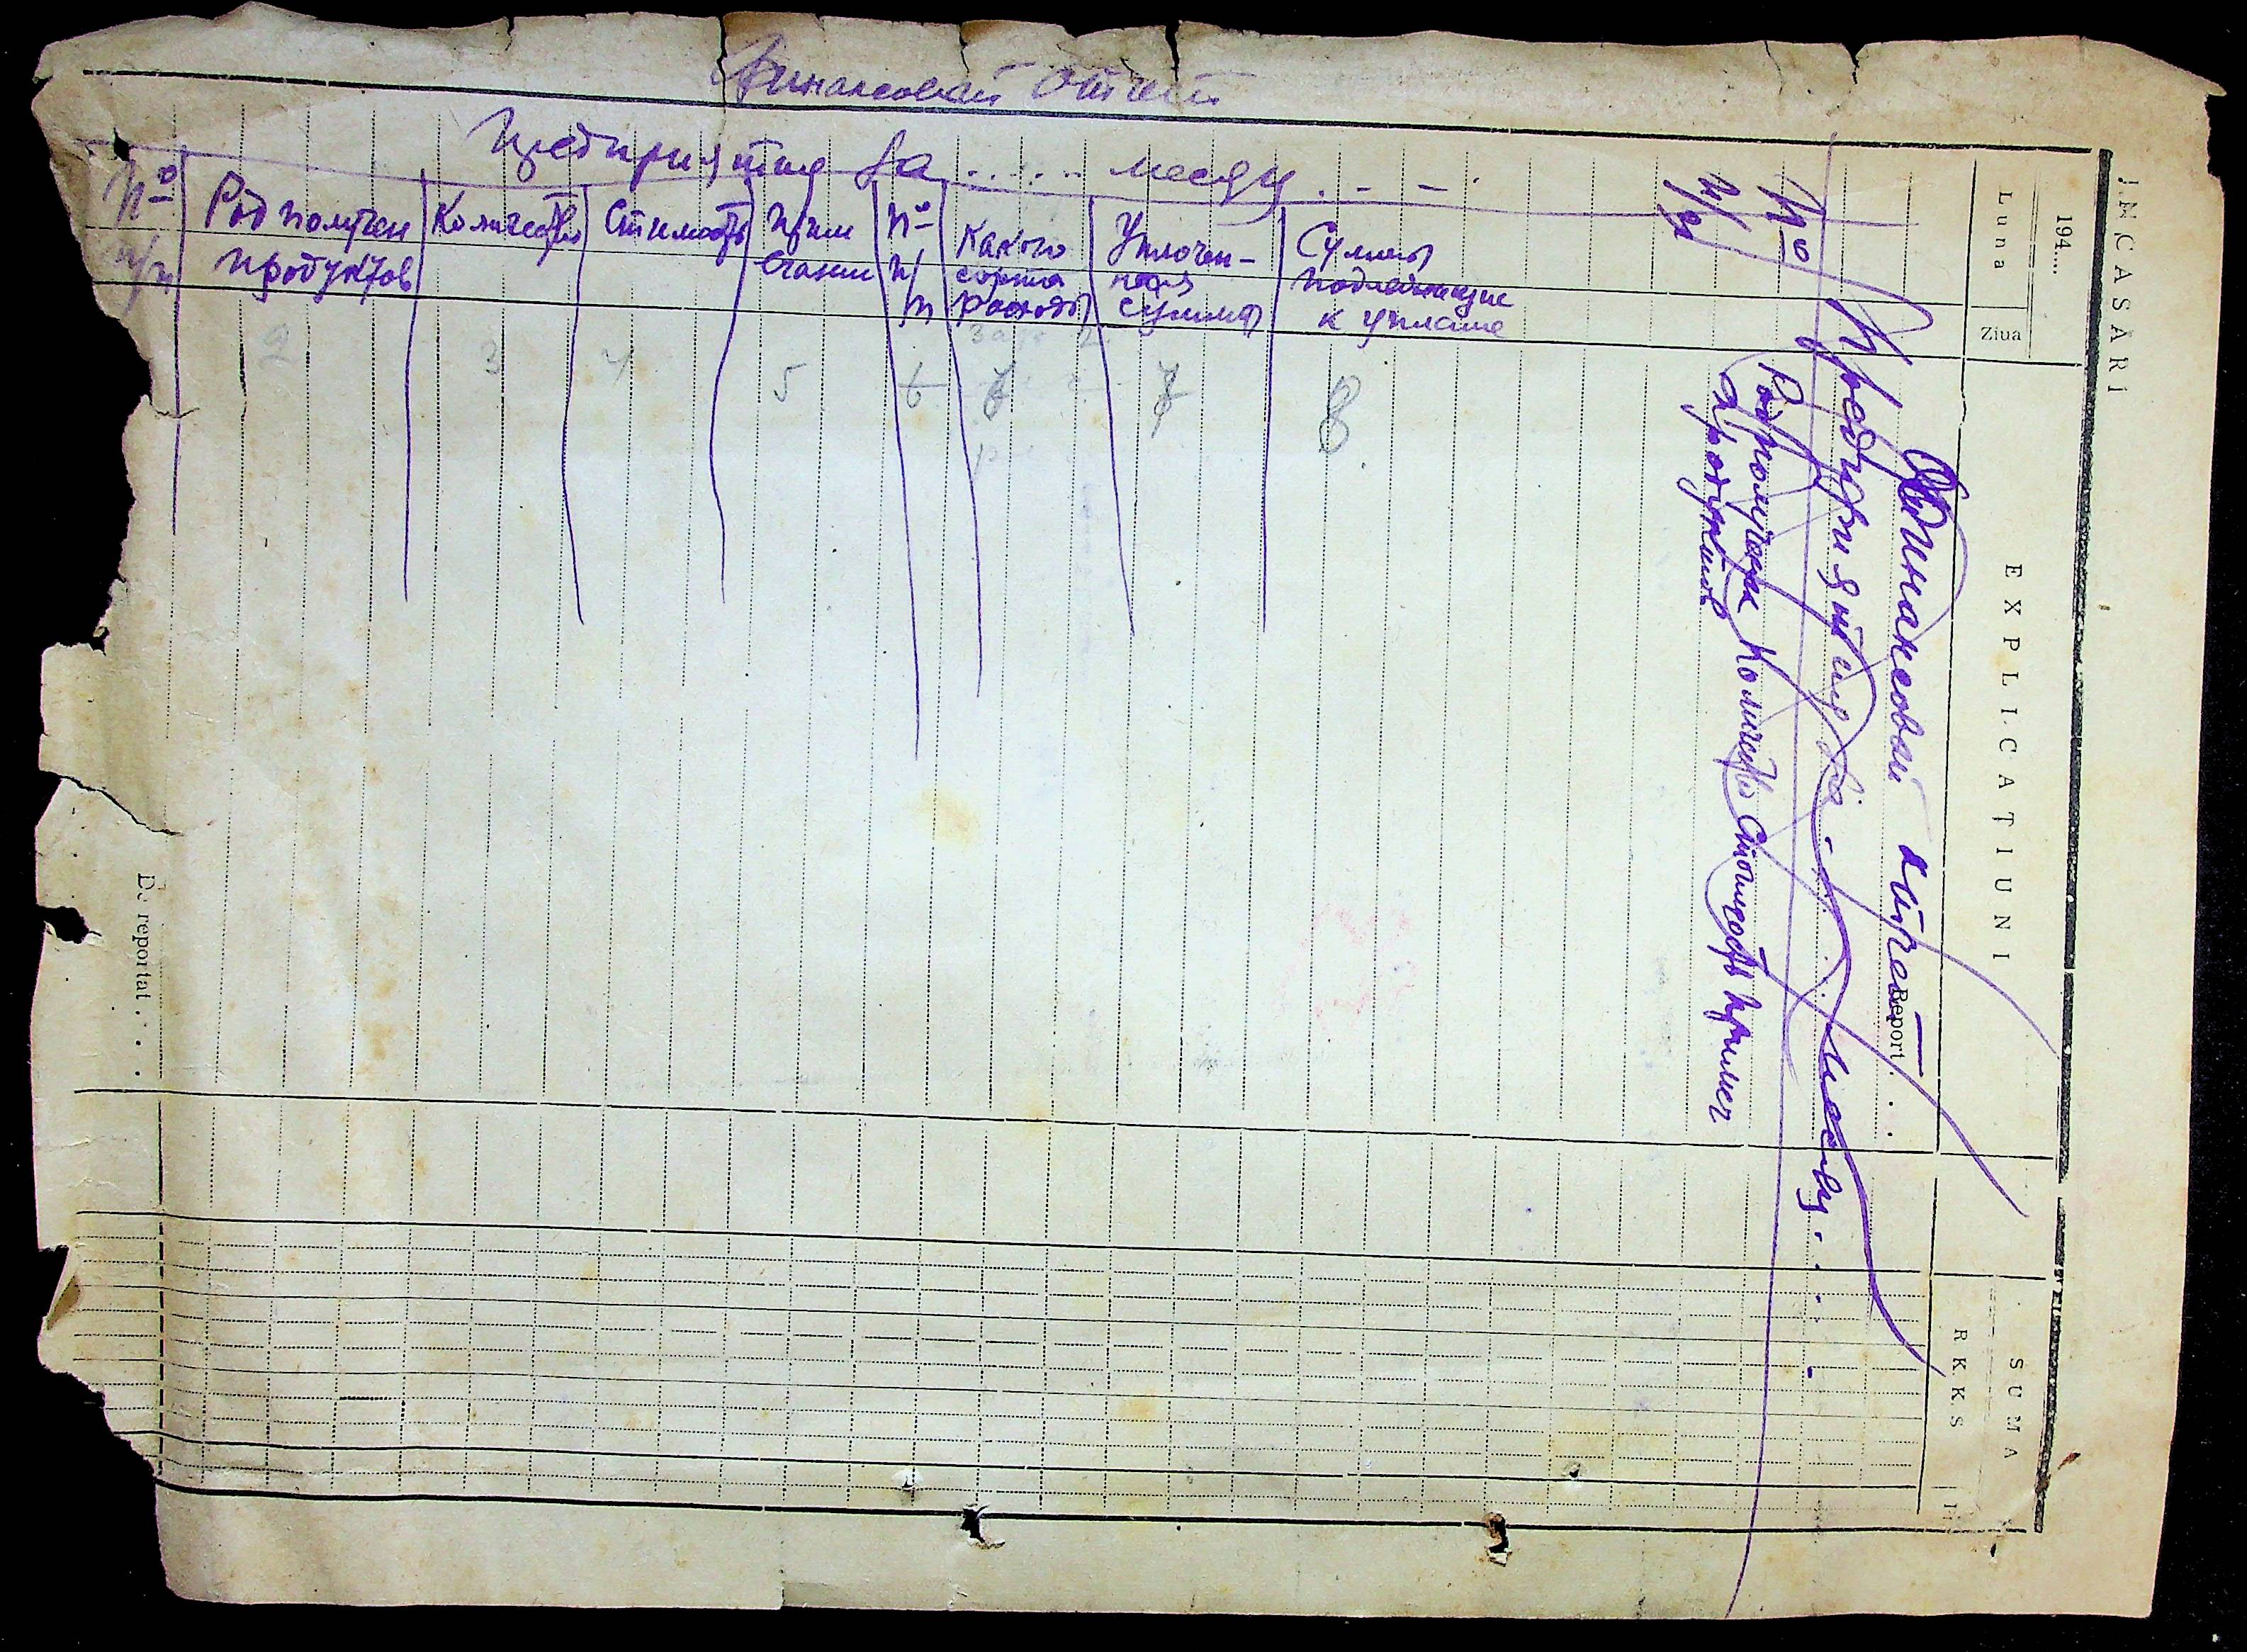 Финансовый отчет
Предприятия за ..... месяц . - - .
№ п/п
Род получен продуктов
Количество
Стимость
Приме чание
№ п/п
Какого сорта расходы
Уплочен- ная сумма
Суммы подлежащие к уплате
2 3 4 5 6 7 8
INCASARI
194....
Luna
Ziua
EXPLICATIUNI
SUMA
RKKS
Report . . .
Финансовый отчет
Предприятия за . . . месяц . . . -
№ п/п
Род получен продуктов
Количество
Стоимость
Примеч
De reportat . . . .